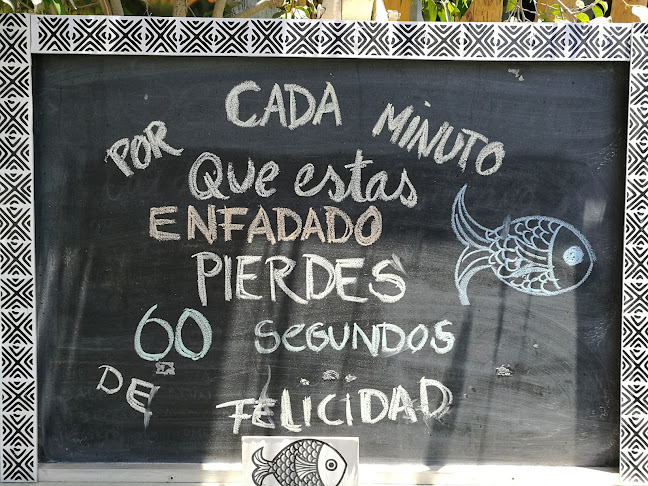 POR CADA MINUTO
Que estas
ENFADADO
PIERDES
60 SEGUNDOS
DE FELICIDAD